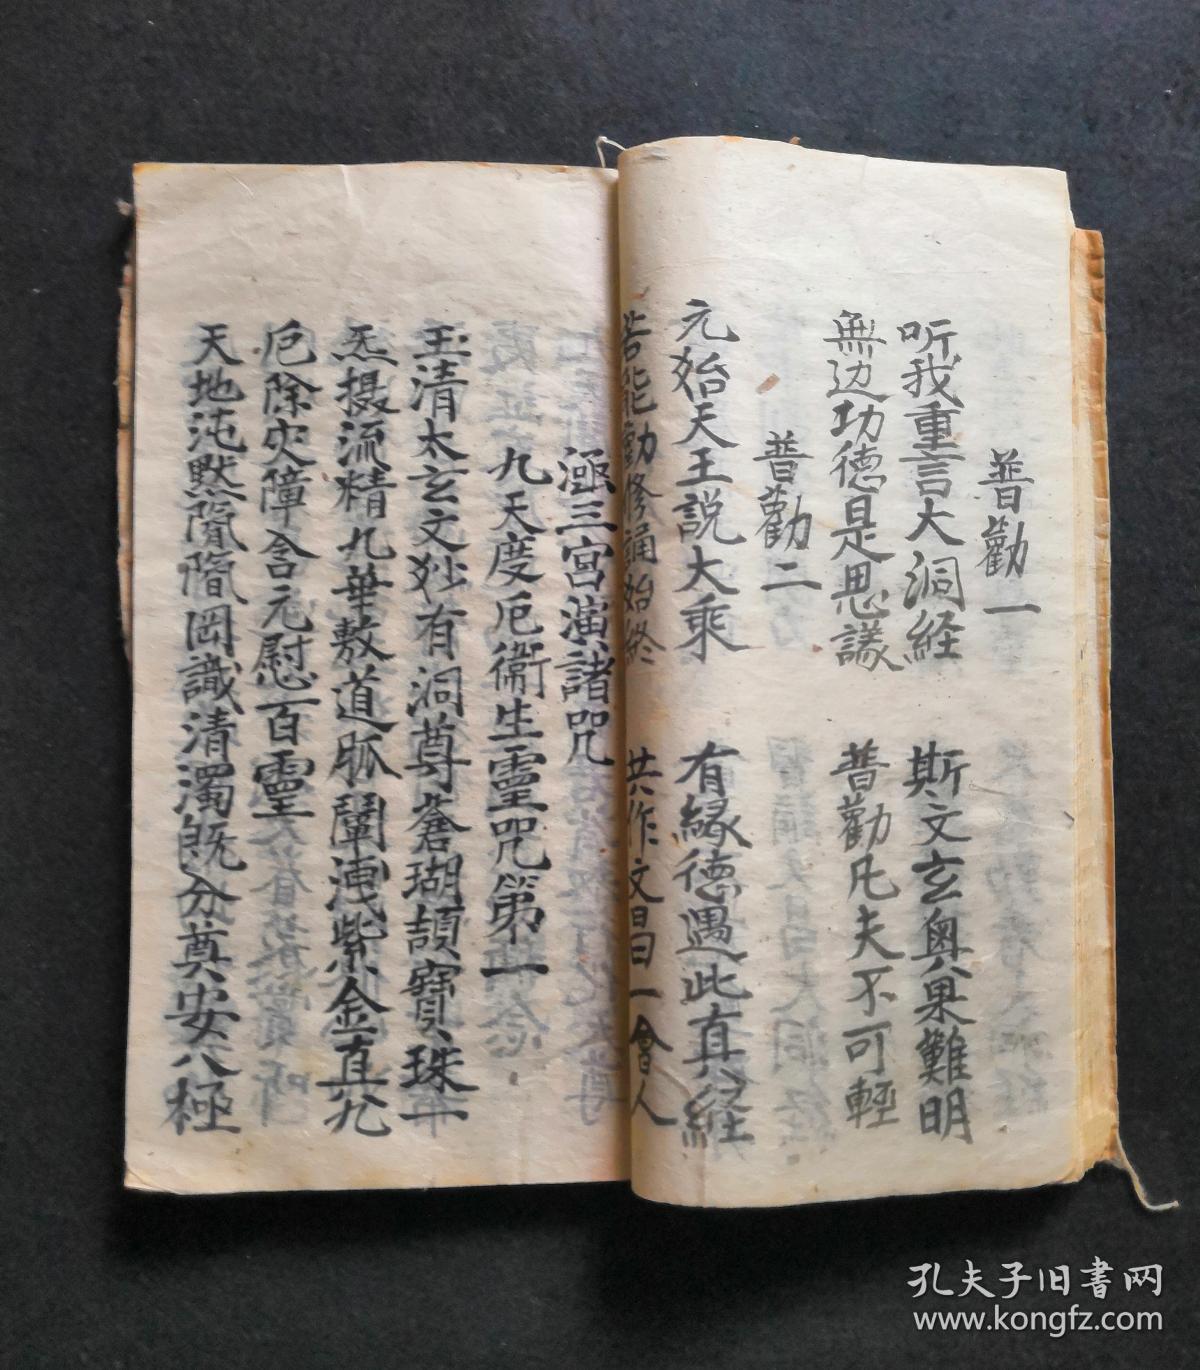 普勸一
听我重言大洞経 斯文玄奥果難明
無边功德是思議 普勸凡夫不可輕
普勸二
元始天王説大乘 有緣德遇此真経
若能勸修誦始終 共作文昌一會人
涵三宮演諸咒
九天度厄衞生靈咒第一
玉清太玄文妙有洞尊蒼瑚頡寶珠十
炁摄流精九華敷道脈闡洩紫金直九
厄除灾障含元慰百靈
天地沌默 罔識清濁既分奠安八極
孔夫子旧書网
www.kongfz.com